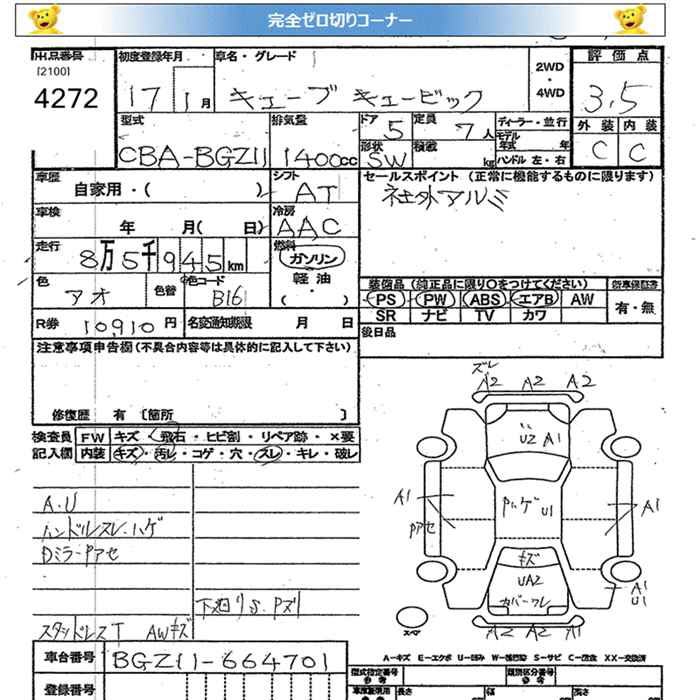 完全ゼロ切りコーナー
出品番号 初度登録年月 車名・グレード 2WD ・ 4WD 評価点
[2100]
4272 17 1月 キューブ キュービック 3.5
型式 排気量 ドア 5 定員 7人 ディーラー・並行 外装 内装
CBA-BGZ11 1400cc 形状 SW 積載 kg モデル年式 年 C C
ハンドル 左・右
車歴 自家用・( ) シフト AT セールスポイント (正常に機能するものに限ります)
社外アルミ
車検 年 月( 日) 冷房 AAC
走行 8万5千945km 燃料 ガソリン
軽油
・( )
色 アオ 色替 色コード B16 装備品 (純正品に限り○をつけてください)
PS PW ABS エアB AW 有・無
SR ナビ TV カワ
R券 10910円 名変通知期限 月 日 後日品
注意事項申告欄(不具合内容等は具体的に記入して下さい)
修復歴 有 〔箇所 〕
検査員 FW キズ・飛石・ヒビ割・リペア跡・×要
記入欄 内装 キズ・汚レ・コゲ・穴・スレ・キレ・破レ
A.U
ハンドルスレ・ハゲ
Dミラー Pアセ
下廻りS.Pズリ
スタッドレスT AWキズ
ズレ
A2 A2 A2
U2 A1
A1 Pハゲ U1 A1
Pアセ
キズ
UA2
カバーワレ
A1
U1
A2 A2 A1
スペア
A-キズ E-エクボ U-凹み S-サビ C-腐食 XX-交換済
車台番号 BGZ11-664701
型式指定番号 類別区分番号
登録番号 長さ 幅 高さ